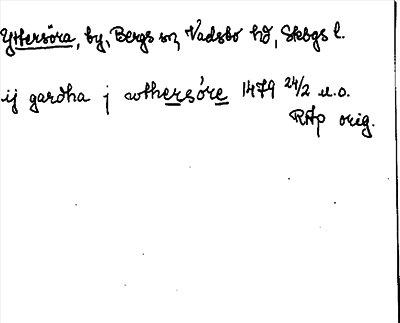 Yttersöra, by, Bergs sn, Vadsbo hd, Skbgs l.
ij gardha j wthersöre 1479 24/2 u.o.
RAp orig.